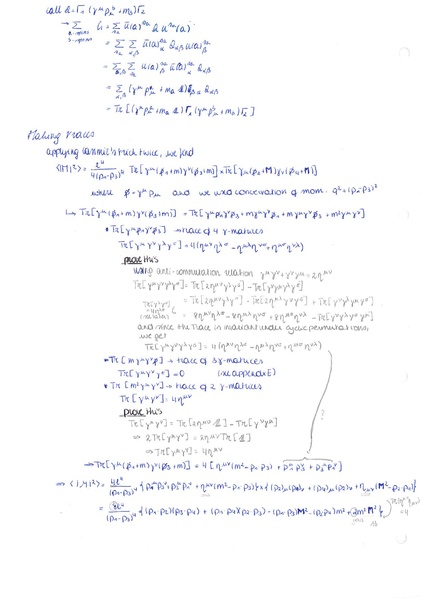 call Q = Γ₁(γ^μ p_μ^b + m_b)Γ₂
→ Σ_{a-spins, b-spins} G = Σ_{s_a} ū(a)^{s_a} Q u^{s_a}(a)
= Σ_{s_a} Σ_{α,β} ū(a)_α^{s_a} Q_{αβ} u(a)_β^{s_a}
= Σ_{α,β} Σ_{s_a} u(a)_β^{s_a} ū(a)_α^{s_a} Q_{αβ}
= Σ_{α,β} (γ^μ p_μ^a + m_a 𝟙)_{βα} Q_{αβ}
= Tr[(γ^μ p_μ^a + m_a 𝟙) Γ₁ (γ^μ p_μ^b + m_b) Γ₂]
Making traces
applying Casimir's trick twice, we find
⟨|M|²⟩ = e⁴/4(p₁-p₃)⁴ Tr[γ^μ(p̸₁+m)γ^ν(p̸₃+m)] × Tr[γ_μ(p̸₂+M)γ_ν(p̸₄+M)]
where p̸ = γ^μ p_μ and we used conservation of mom. q² = (p₁-p₃)²
↳ Tr[γ^μ(p̸₁+m)γ^ν(p̸₃+m)] = Tr[γ^μ p̸₁ γ^ν p̸₃ + mγ^μ γ^ν p̸₁ + mγ^μ γ^ν p̸₃ + m²γ^μ γ^ν]
* Tr[γ^μ p̸ γ^ν p̸] → trace of 4 γ-matrices
Tr[γ^μ γ^ν γ^λ γ^σ] = 4(η^{μν} η^{λσ} - η^{μλ} η^{νσ} + η^{μσ} η^{νλ})
prove this
using anti-commutation relation γ^μ γ^ν + γ^ν γ^μ = 2η^{μν}
Tr[γ^μ γ^ν γ^λ γ^σ] = Tr[2η^{μν} γ^λ γ^σ] - Tr[γ^ν γ^μ γ^λ γ^σ]
= Tr[2η^{μν} γ^λ γ^σ] - Tr[2η^{μλ} γ^ν γ^σ] + Tr[γ^ν γ^λ γ^μ γ^σ]
Tr[γ^μ γ^ν] = 4η^{μν}
= 8η^{μν} η^{λσ} - 8η^{μλ} η^{νσ} + 8η^{μσ} η^{νλ} - Tr[γ^ν γ^λ γ^σ γ^μ]
and since the trace is invariant under cyclic permutations,
we get
Tr[γ^μ γ^ν γ^λ γ^σ] = 4(η^{μν} η^{λσ} - η^{μλ} η^{νσ} + η^{μσ} η^{νλ})
* Tr[mγ^μ γ^ν p̸] → trace of 3 γ-matrices
Tr[γ^μ γ^ν γ^σ] = 0 (see appendix E)
* Tr[m²γ^μ γ^ν] → trace of 2 γ-matrices
Tr[γ^μ γ^ν] = 4η^{μν}
prove this
Tr[γ^μ γ^ν] = Tr[2η^{μν} 𝟙] - Tr[γ^ν γ^μ]
⇒ 2Tr[γ^μ γ^ν] = 2η^{μν} Tr[𝟙]
⇒ Tr[γ^μ γ^ν] = 4η^{μν}
?
→ Tr[γ^μ(p̸₁+m)γ^ν(p̸₃+m)] = 4[η^{μν}(m² - p₁·p₃) + p₁^μ p₃^ν + p₃^μ p₁^ν]
⇒ ⟨|M|²⟩ = 4e⁴/(p₁-p₃)⁴ {p₁^μ p₃^ν + p₃^μ p₁^ν + η^{μν}(m² - p₁·p₃)} × {(p₂)_μ(p₄)_ν + (p₄)_μ(p₂)_ν + η_{μν}(M² - p₂·p₄)}
= 8e⁴/(p₁-p₃)⁴ {(p₁·p₂)(p₃·p₄) + (p₁·p₄)(p₂·p₃) - (p₁·p₃)M² - (p₂·p₄)m² + 2m²M²}